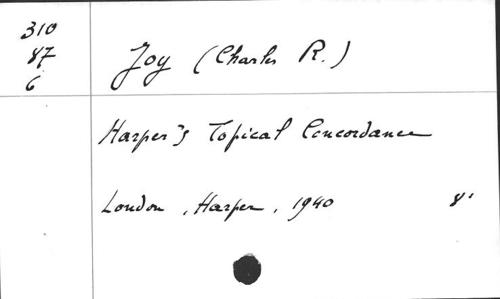 310
87
6
Joy (Charles R.)
Harper's Topical Concordance
London, Harper, 1940 8°